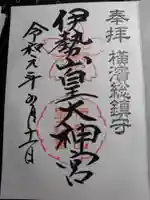 奉拝
横濱総鎮守
伊勢山皇大神宮
令和元年
月十一日